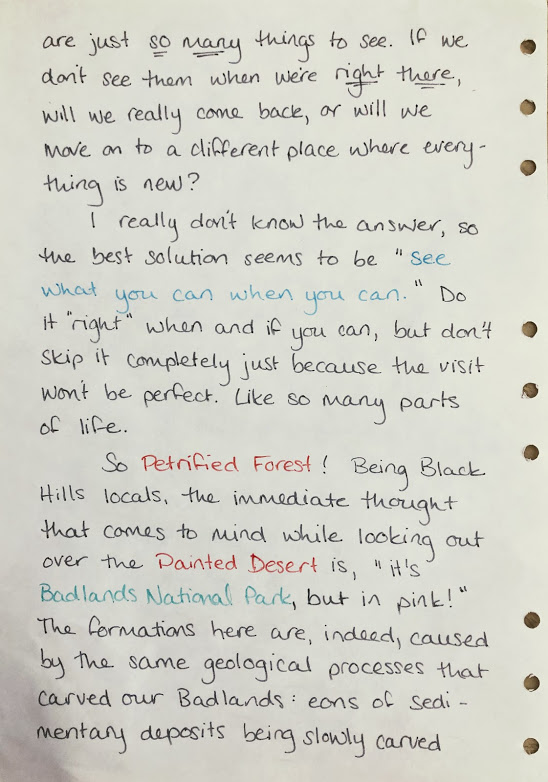 are just so many things to see. If we
don't see them when we're right there,
will we really come back, or will we
move on to a different place where every-
thing is new?
I really don't know the answer, so
the best solution seems to be "see
what you can when you can." Do
it "right" when and if you can, but don't
skip it completely just because the visit
won't be perfect. Like so many parts
of life.
So Petrified Forest! Being Black
Hills locals, the immediate thought
that comes to mind while looking out
over the Painted Desert is, "it's
Badlands National Park, but in pink!"
The formations here are, indeed, caused
by the same geological processes that
carved our Badlands: eons of sedi-
mentary deposits being slowly carved